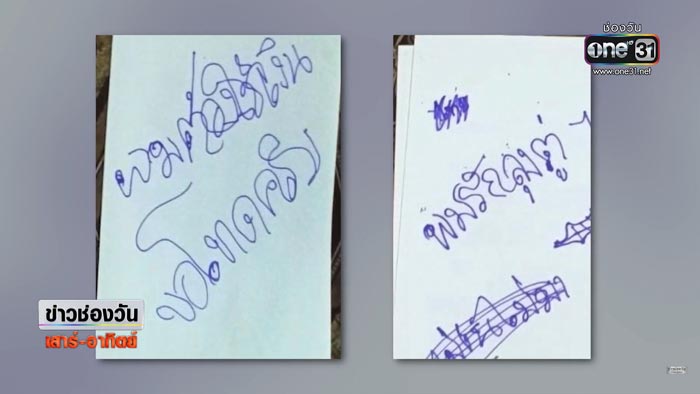 ผมต้องใช้เงิน
ขอโทดครับ
ผมรักลุงตู่
ช่องวัน
one 31
www.one31.net
ข่าวช่องวัน
เสาร์-อาทิตย์